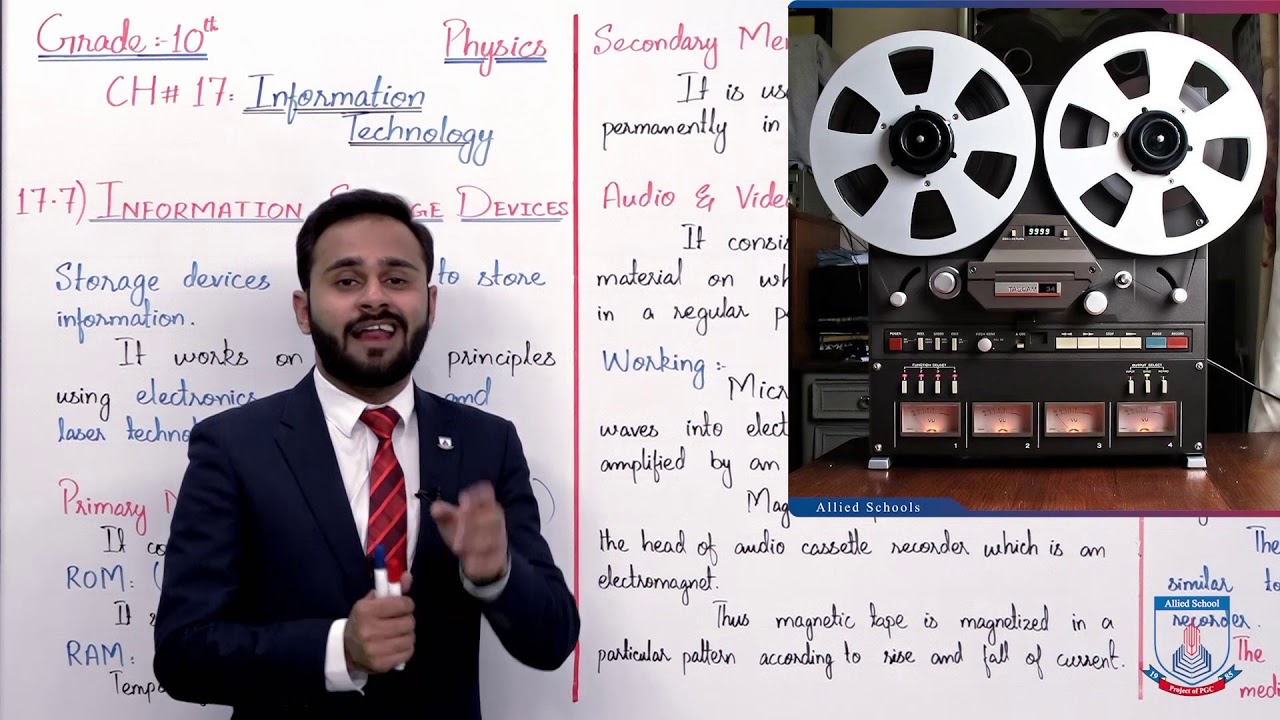 Grade:-10th
Physics
CH# 17: Information
Technology
17.7) INFORMATION GE DEVICES
Storage devices to store
information.
It works on principles
using electronics and
laser techno
Primary M
It co
ROM: (
It s
RAM:
Tempo
Secondary Mem
It is us
permanently in
Audio & Video
It consis
material on wh
in a regular p
Working :-
Micr
waves into elect
amplified by an
Mag
the head of audio cassette recorder which is an
electromagnet.
Thus magnetic tape is magnetized in a
particular pattern according to rise and fall of current.
9999
TASCAM 34
POWER
FUNCTION SELECT
OUTPUT SELECT
VU VU VU VU
1 2 3 4
Allied Schools
The
similar to
recorder.
The
medi
Allied School
19 85
Project of PGC